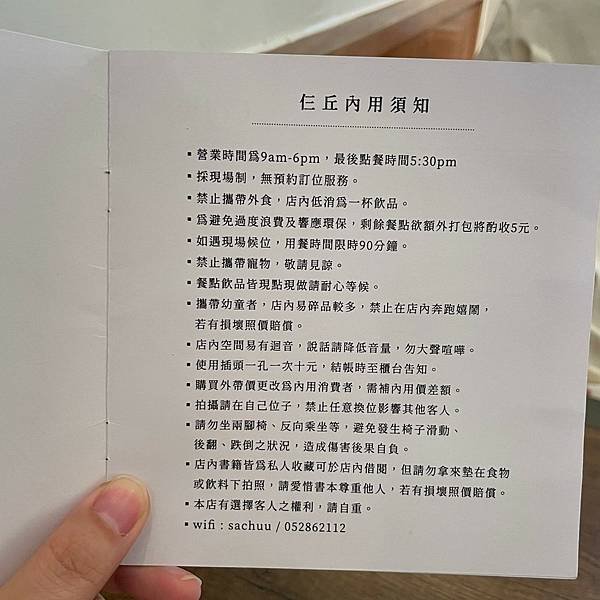 仨丘內用須知
▪營業時間為9am-6pm，最後點餐時間5:30pm
▪採現場制，無預約訂位服務。
▪禁止攜帶外食，店內低消為一杯飲品。
▪為避免過度浪費及響應環保，剩餘餐點欲額外打包將酌收5元。
▪如遇現場候位，用餐時間限時90分鐘。
▪禁止攜帶寵物，敬請見諒。
▪餐點飲品皆現點現做請耐心等候。
▪攜帶幼童者，店內易碎品較多，禁止在店內奔跑嬉鬧，
若有損壞照價賠償。
▪店內空間易有迴音，說話請降低音量，勿大聲喧嘩。
▪使用插頭一孔一次十元，結帳時至櫃台告知。
▪購買外帶價更改為內用消費者，需補內用價差額。
▪拍攝請在自己位子，禁止任意換位影響其他客人。
▪請勿坐兩腳椅、反向乘坐等，避免發生椅子滑動、
後翻、跌倒之狀況，造成傷害後果自負。
▪店內書籍皆為私人收藏可於店內借閱，但請勿拿來墊在食物
或飲料下拍照，請愛惜書本尊重他人，若有損壞照價賠償。
▪本店有選擇客人之權利，請自重。
▪wifi : sachuu / 052862112